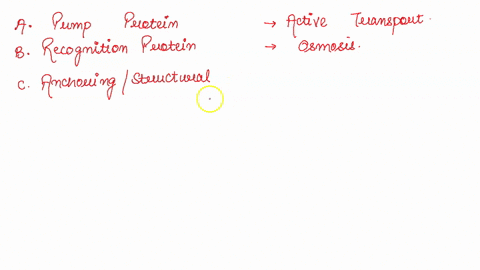 A. Pump Protein → Active Transport.
B. Recognition Protein → Osmosis.
C. Anchoring / Structural